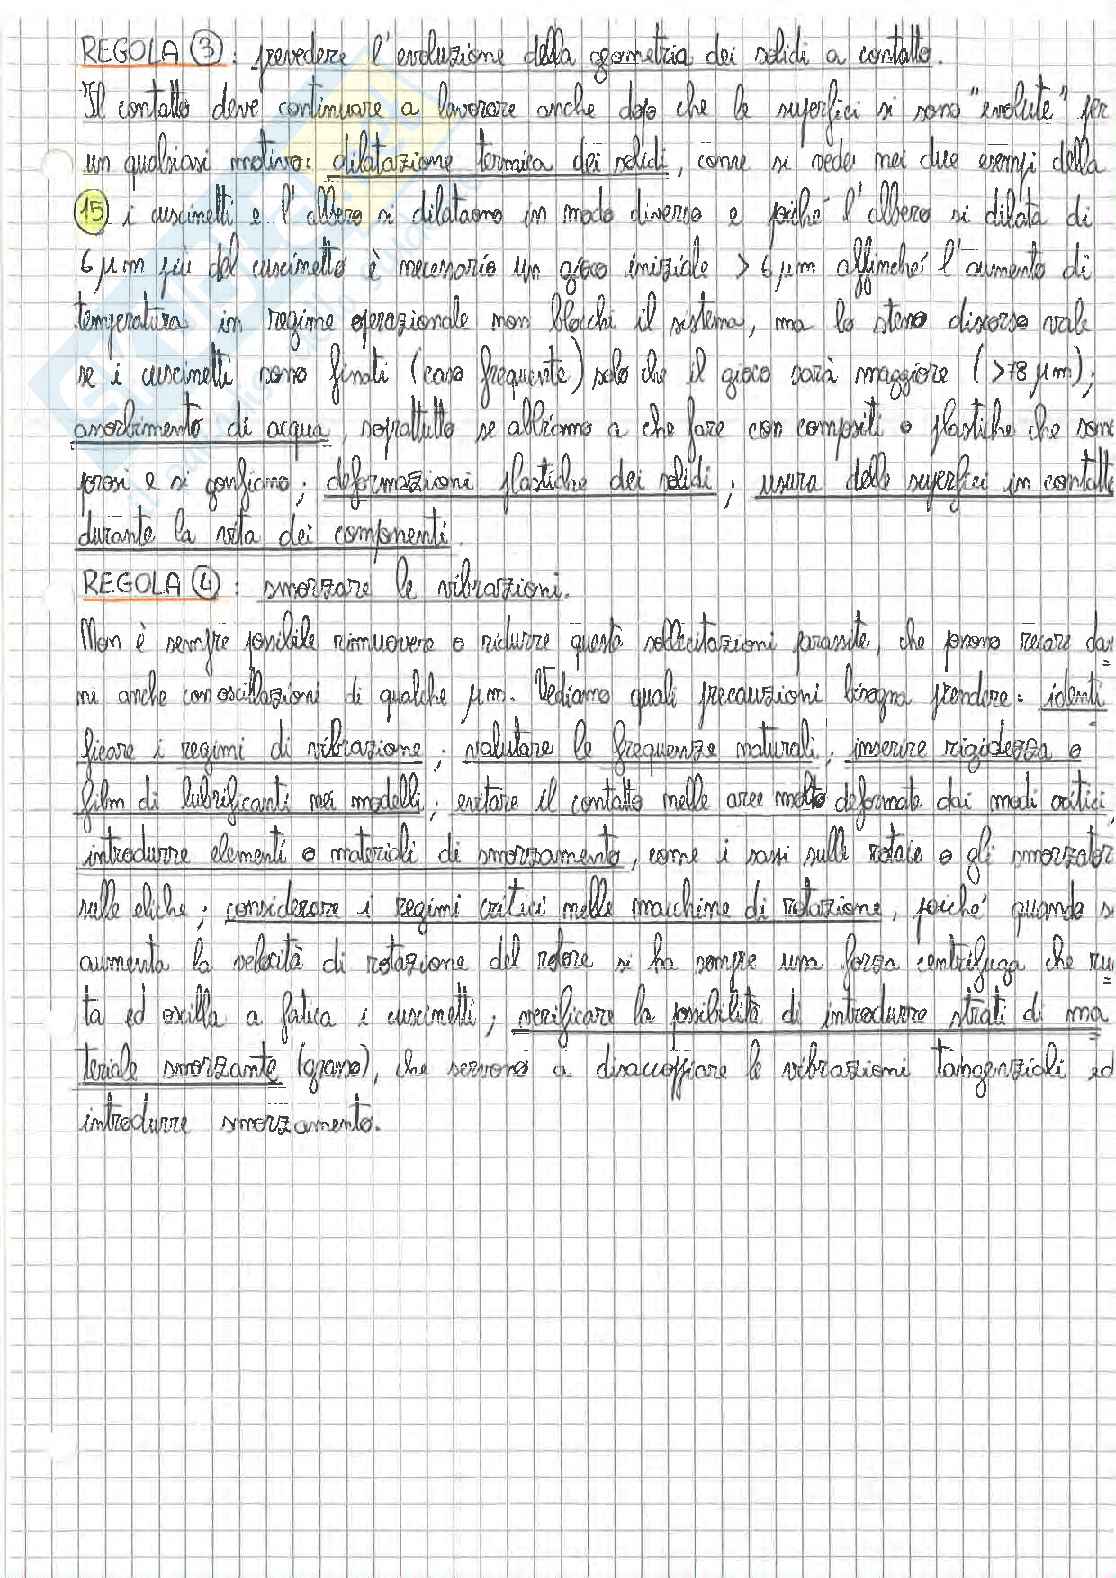 REGOLA 3: prevedere l'evoluzione della geometria dei solidi a contatto.
Il contatto deve continuare a lavorare anche dopo che le superfici si sono "evolute" per
un qualsiasi motivo: dilatazione termica dei solidi, come si vede nei due esempi della
15 i cuscinetti e l'albero si dilatano in modo diverso e poiché l'albero si dilata di
6 μm più del cuscinetto è necessario un gioco iniziale > 6 μm affinché l'aumento di
temperatura in regime operazionale non blocchi il sistema, ma lo stesso discorso vale
se i cuscinetti sono fissati (caso frequente) solo che il gioco sarà maggiore (>78 μm);
assorbimento di acqua, soprattutto se abbiamo a che fare con compositi o plastiche che sono
porosi e si gonfiano; deformazioni plastiche dei solidi; usura delle superfici in contatto
durante la vita dei componenti.
REGOLA 4: smorzare le vibrazioni.
Non è sempre possibile rimuovere o ridurre queste sollecitazioni parassite, che possono recare dan
ni anche con oscillazioni di qualche μm. Vediamo quali precauzioni bisogna prendere: identi
ficare i regimi di vibrazione; valutare le frequenze naturali; inserire rigidezza e
film di lubrificanti nei modelli; evitare il contatto nelle aree molto deformate dai modi critici;
introdurre elementi o materiali di smorzamento, come i sassi sulle rotaie o gli smorzator
sulle eliche; considerare i regimi critici nelle macchine di rotazione, poiché quando s
aumenta la velocità di rotazione del rotore si ha sempre una forza centrifuga che ruo
ta ed oscilla a fatica i cuscinetti; verificare la possibilità di introdurre strati di ma
teriale smorzante (grasso), che servono a disaccoppiare le vibrazioni tangenziali ed
introdurre smorzamento.